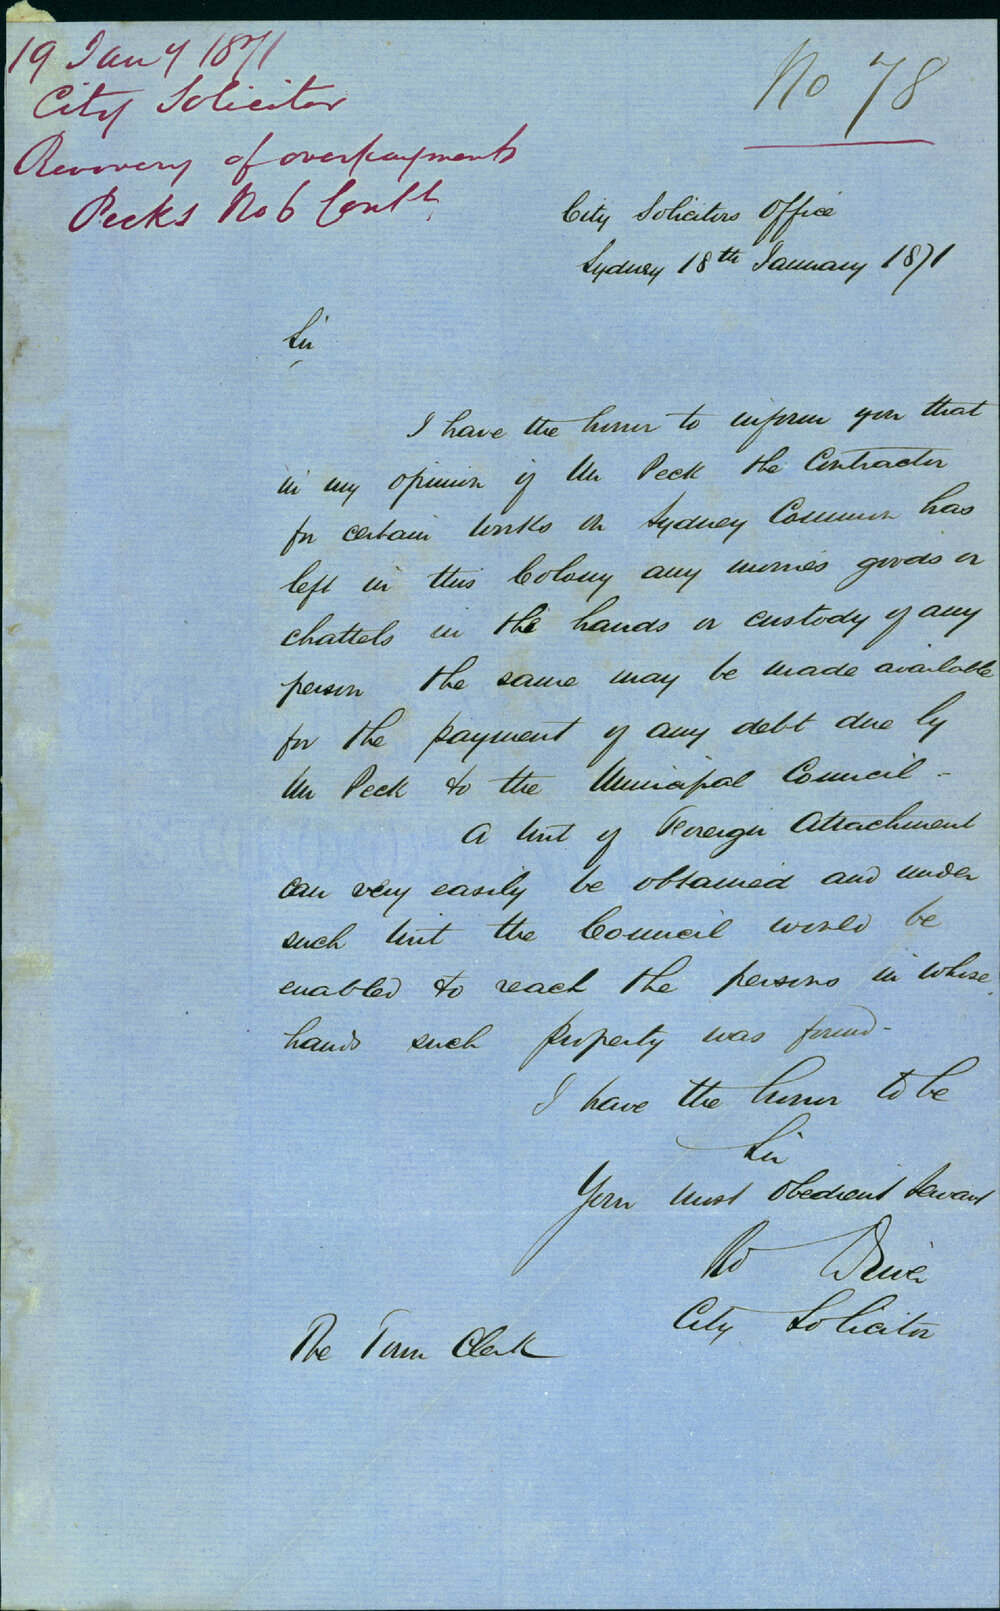 19 Jany 1871
City Solicitor
Recovery of overpayments
Pecks No 6 Contt
No 78
City Solicitors Office
Sydney 18th January 1871
Sir
I have the honor to inform you that
in my opinion if Mr Peck the Contractor
for certain works on Sydney Common has
left in this Colony any monies goods or
chattels in the hands or custody of any
person the same may be made available
for the payment of any debt due by
Mr Peck to the Municipal Council -
A Writ of Foreign Attachment
can very easily be obtained and under
such Writ the Council would be
enabled to reach the persons in whose
hands such property was found -
I have the honor to be
Sir
Your most obedient Servant
Rd Driver
City Solicitor
The Town Clerk